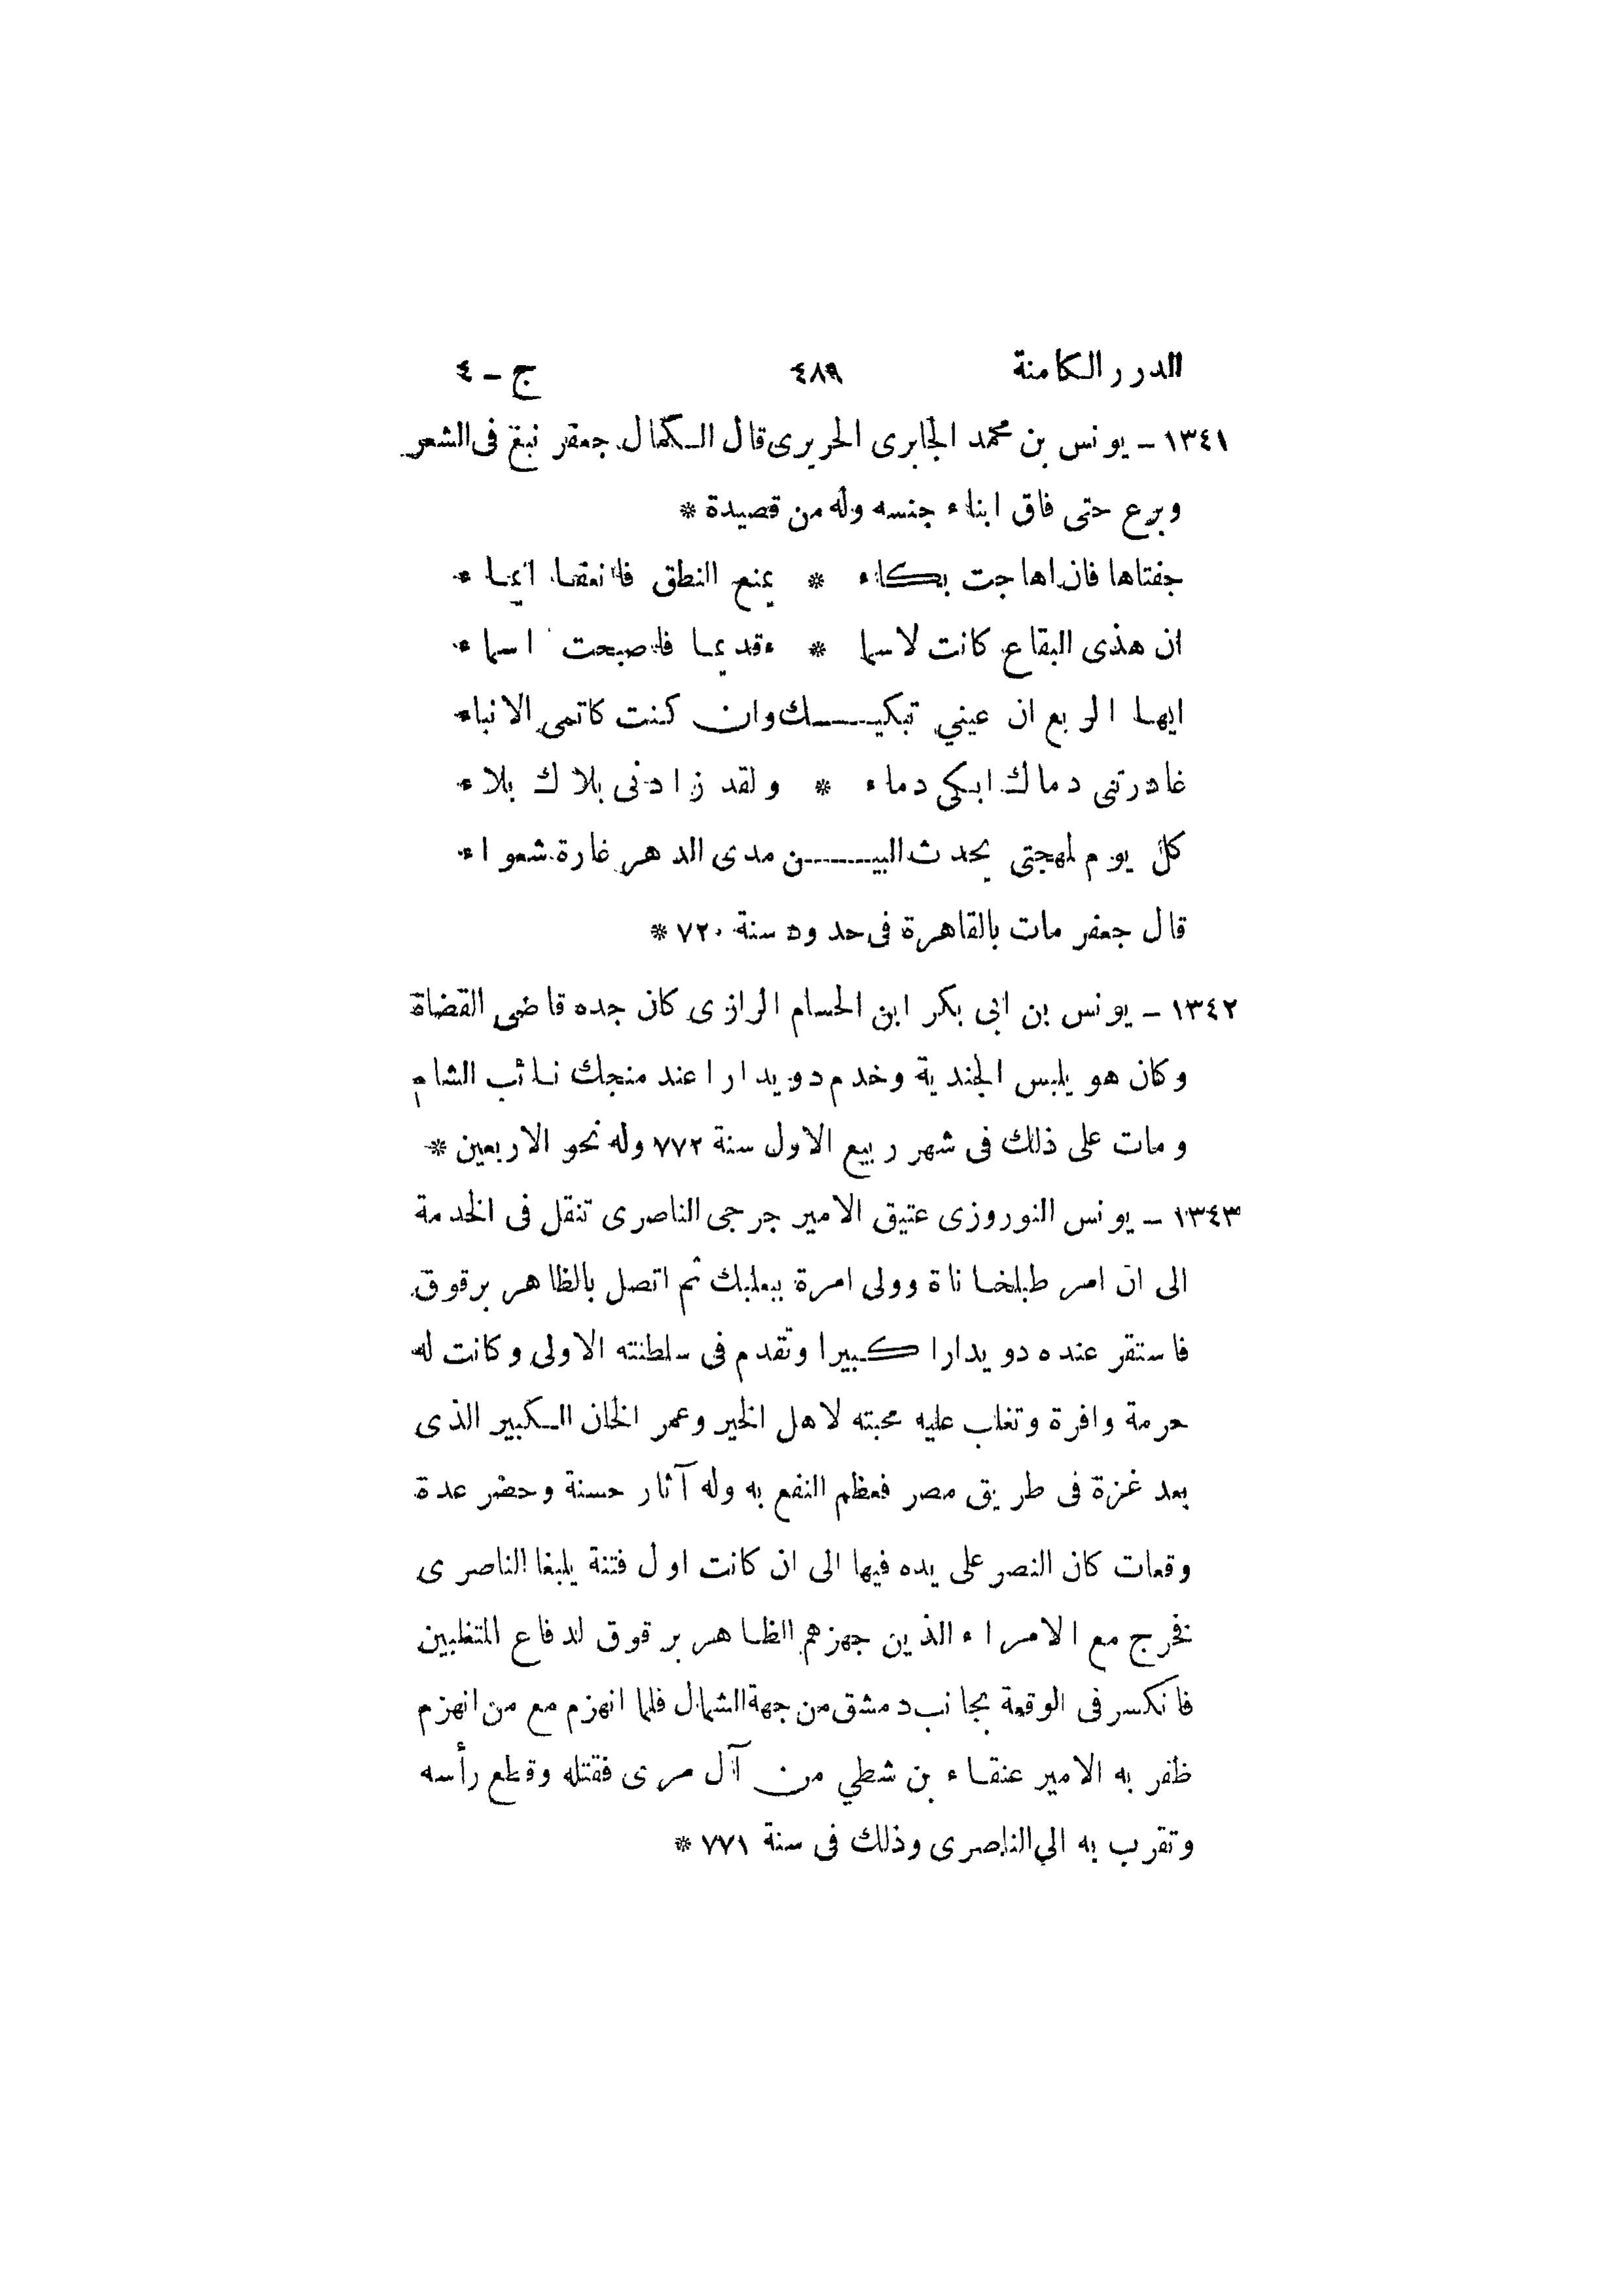 الدررالكامنة ٤٨٩ ج - ٤
١٣٤١ - يونس بن محمد الجابرى الحريرى قال الكمال جعفر نبغ فى الشعر
وبرع حتى فاق ابناء جنسه وله من قصيدة *
جفتاها فان اهاجت بكاء * يمنع النطق فانعقا ايماء
ان هذى البقاع كانت لاسما * ءقديما فاصبحت اسماء
ايها الربع ان عيني تبكيـــــك وان كنت كاتمى الانباء
غادرتنى دماك ابكى دماء * ولقد زادنى بلاك بلاء
كل يوم لمهجتى يحدث البيـــــن مدى الدهر غارة شعواء
قال جعفر مات بالقاهرة فى حدود سنة ٧٢٠ *
١٣٤٢ - يونس بن ابى بكر ابن الحسام الرازى كان جده قاضى القضاة
وكان هو يلبس الجندية وخدم دويدارا عند منجك نائب الشام
ومات على ذلك فى شهر ربيع الاول سنة ٧٧٢ وله نحو الاربعين *
١٣٤٣ - يونس النوروزى عتيق الامير جرجى الناصرى تنقل فى الخدمة
الى ان امر طبلخاناة وولى امرة ببعلبك ثم اتصل بالظاهر برقوق
فاستقر عنده دويدارا كبيرا وتقدم فى سلطنته الاولى وكانت له
حرمة وافرة وتغلب عليه محبته لاهل الخير وعمر الخان الكبير الذى
بعد غزة فى طريق مصر فعظم النفع به وله آثار حسنة وحضر عدة
وقعات كان النصر على يده فيها الى ان كانت اول فتنة يلبغا الناصرى
فخرج مع الامراء الذين جهزهم الظاهر برقوق لدفاع المتغلبين
فانكسر فى الوقعة بجانب دمشق من جهة الشمال فلما انهزم مع من انهزم
ظفر به الامير عنقاء بن شطي من آل مرى فقتله وقطع رأسه
وتقرب به الي الناصرى وذلك فى سنة ٧٧١ *